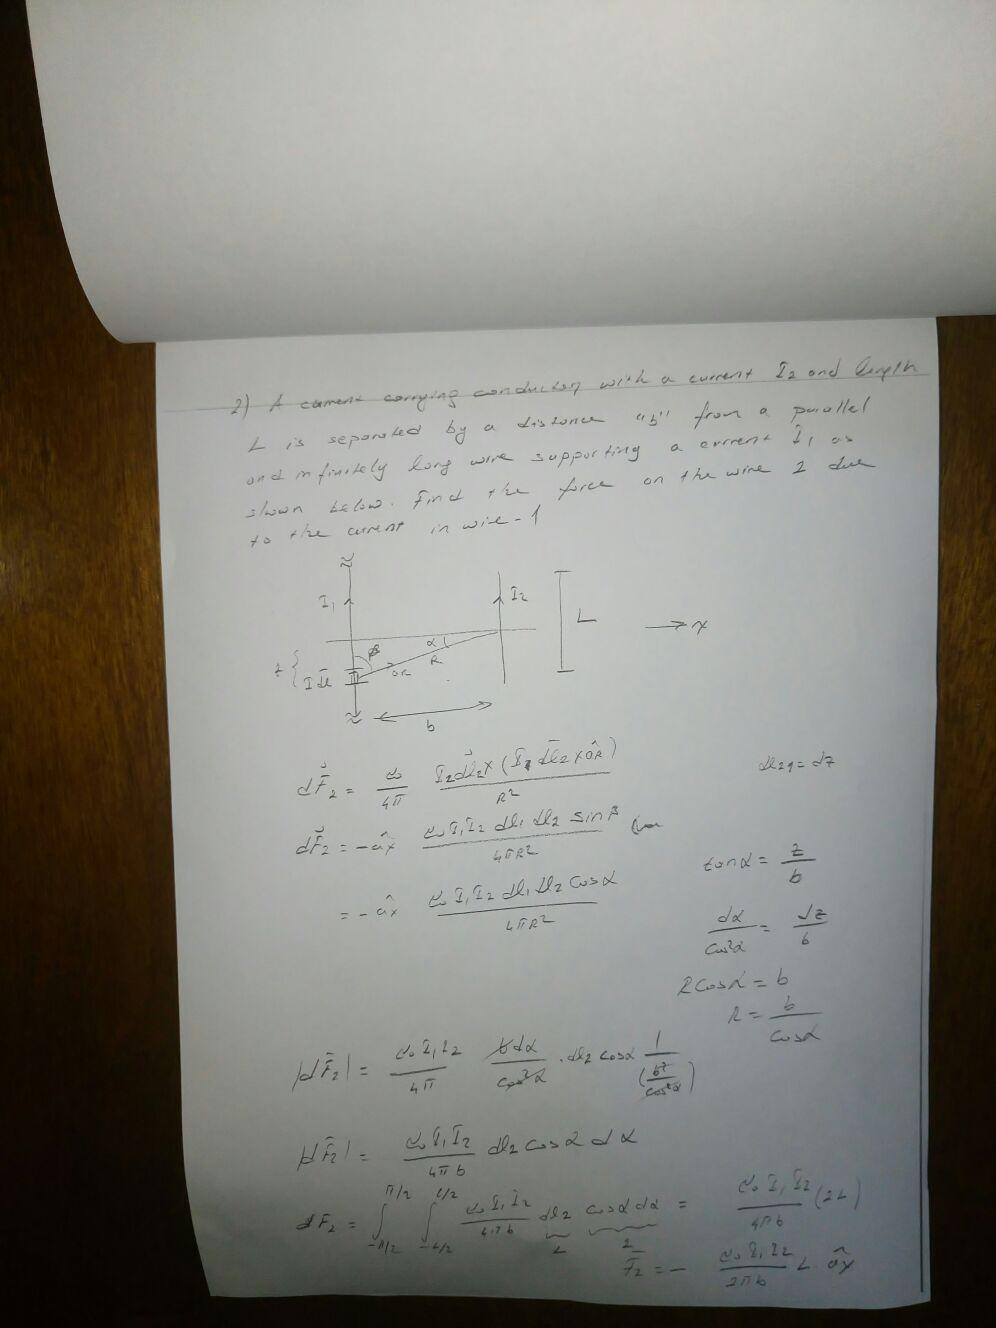 2) A current carrying conductor with a current I2 and length
L is separated by a distance "b" from a parallel
and infinitely long wire supporting a current I1 as
shown below. Find the force on the wire 2 due
to the current in wire-1
I1 I2
L → x
z α
I dl R aR
b
dF̄2 = μ0/4π I2 dl2 × (I1 dl2 × âR) / R² dl1 = dz
dF̄2 = -âx μ0 I1 I2 dl1 dl2 sinβ / 4πR²
= -âx μ0 I1 I2 dl1 dl2 cosα / 4πR² tanα = z/b
dα/cos²α = dz/b
R cosα = b
R = b/cosα
|dF̄2| = μ0 I1 I2 / 4π b dα / cos²α . dl2 cosα 1/(b²/cos²α)
|dF̄2| = μ0 I1 I2 / 4πb dl2 cosα dα
dF2 = ∫-π/2 π/2 ∫-L/2 L/2 μ0 I1 I2 / 4πb dl2 cosα dα = μ0 I1 I2 / 4πb (2L)
L 2
F̄2 = - μ0 I1 I2 / 2πb L âx